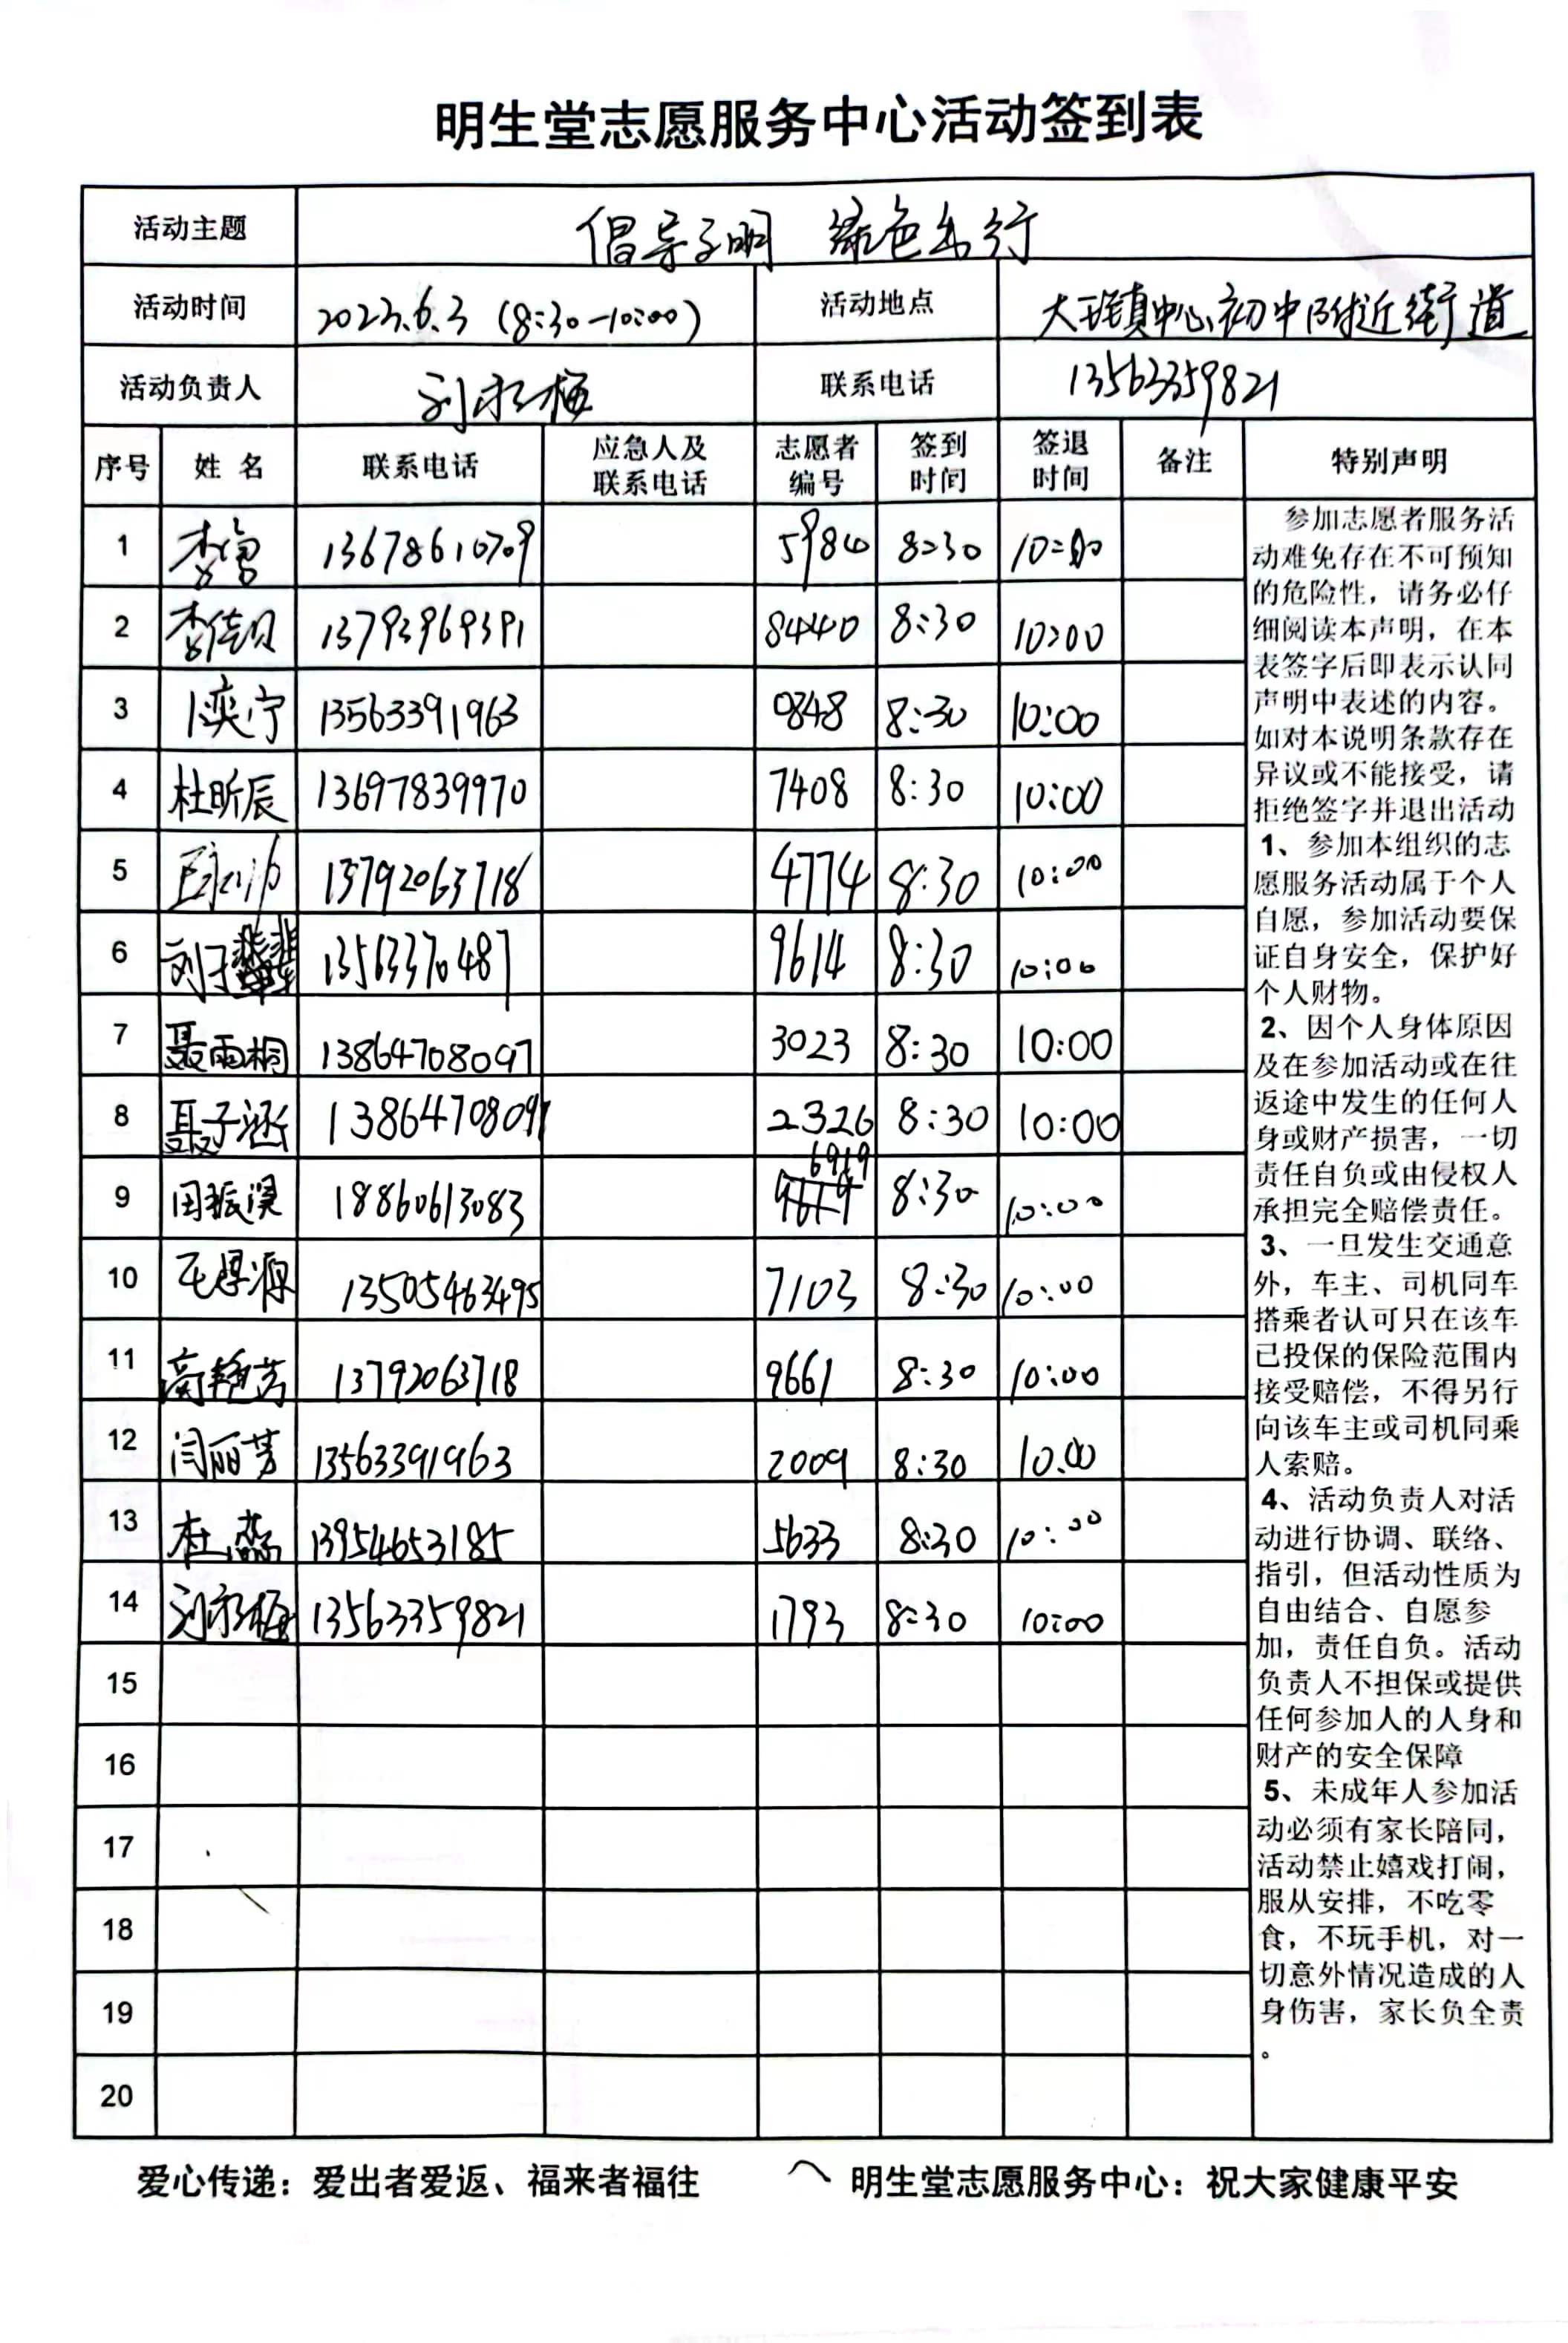 明生堂志愿服务中心活动签到表
活动主题 倡导文明 绿色出行
活动时间 2023.6.3 (8:30-10:00) 活动地点 大王镇中心初中附近街道
活动负责人 刘永梅 联系电话 13563359821
序号 姓名 联系电话 应急人及联系电话 志愿者编号 签到时间 签退时间 备注 特别声明
1 13678610709 5980 8:30 10:00
2 李佳贝 13793969391 8440 8:30 10:00
3 13563391963 0848 8:30 10:00
4 杜昕辰 13697839970 7408 8:30 10:00
5 13792063718 4774 8:30 10:00
6 刘子 1356337048 9614 8:30 10:00
7 聂雨桐 13864708097 3023 8:30 10:00
8 聂子涵 13864708097 2326 8:30 10:00
9 田振淏 18860613083 6919 8:30 10:00
10 毛思源 13505463495 7103 8:30 10:00
11 高艳芳 13792063718 9661 8:30 10:00
12 闫丽芳 13563391963 2009 8:30 10:00
13 杜蕊 13954653185 5633 8:30 10:00
14 刘永梅 13563359821 1793 8:30 10:00
15
16
17
18
19
20
参加志愿者服务活
动难免存在不可预知
的危险性，请务必仔
细阅读本声明，在本
表签字后即表示认同
声明中表述的内容。
如对本说明条款存在
异议或不能接受，请
拒绝签字并退出活动
1、参加本组织的志
愿服务活动属于个人
自愿，参加活动要保
证自身安全，保护好
个人财物。
2、因个人身体原因
及在参加活动或在往
返途中发生的任何人
身或财产损害，一切
责任自负或由侵权人
承担完全赔偿责任。
3、一旦发生交通意
外，车主、司机同车
搭乘者认可只在该车
已投保的保险范围内
接受赔偿，不得另行
向该车主或司机同乘
人索赔。
4、活动负责人对活
动进行协调、联络、
指引，但活动性质为
自由结合、自愿参
加，责任自负。活动
负责人不担保或提供
任何参加人的人身和
财产的安全保障
5、未成年人参加活
动必须有家长陪同，
活动禁止嬉戏打闹，
服从安排，不吃零
食，不玩手机，对一
切意外情况造成的人
身伤害，家长负全责
。
爱心传递：爱出者爱返、福来者福往 明生堂志愿服务中心：祝大家健康平安